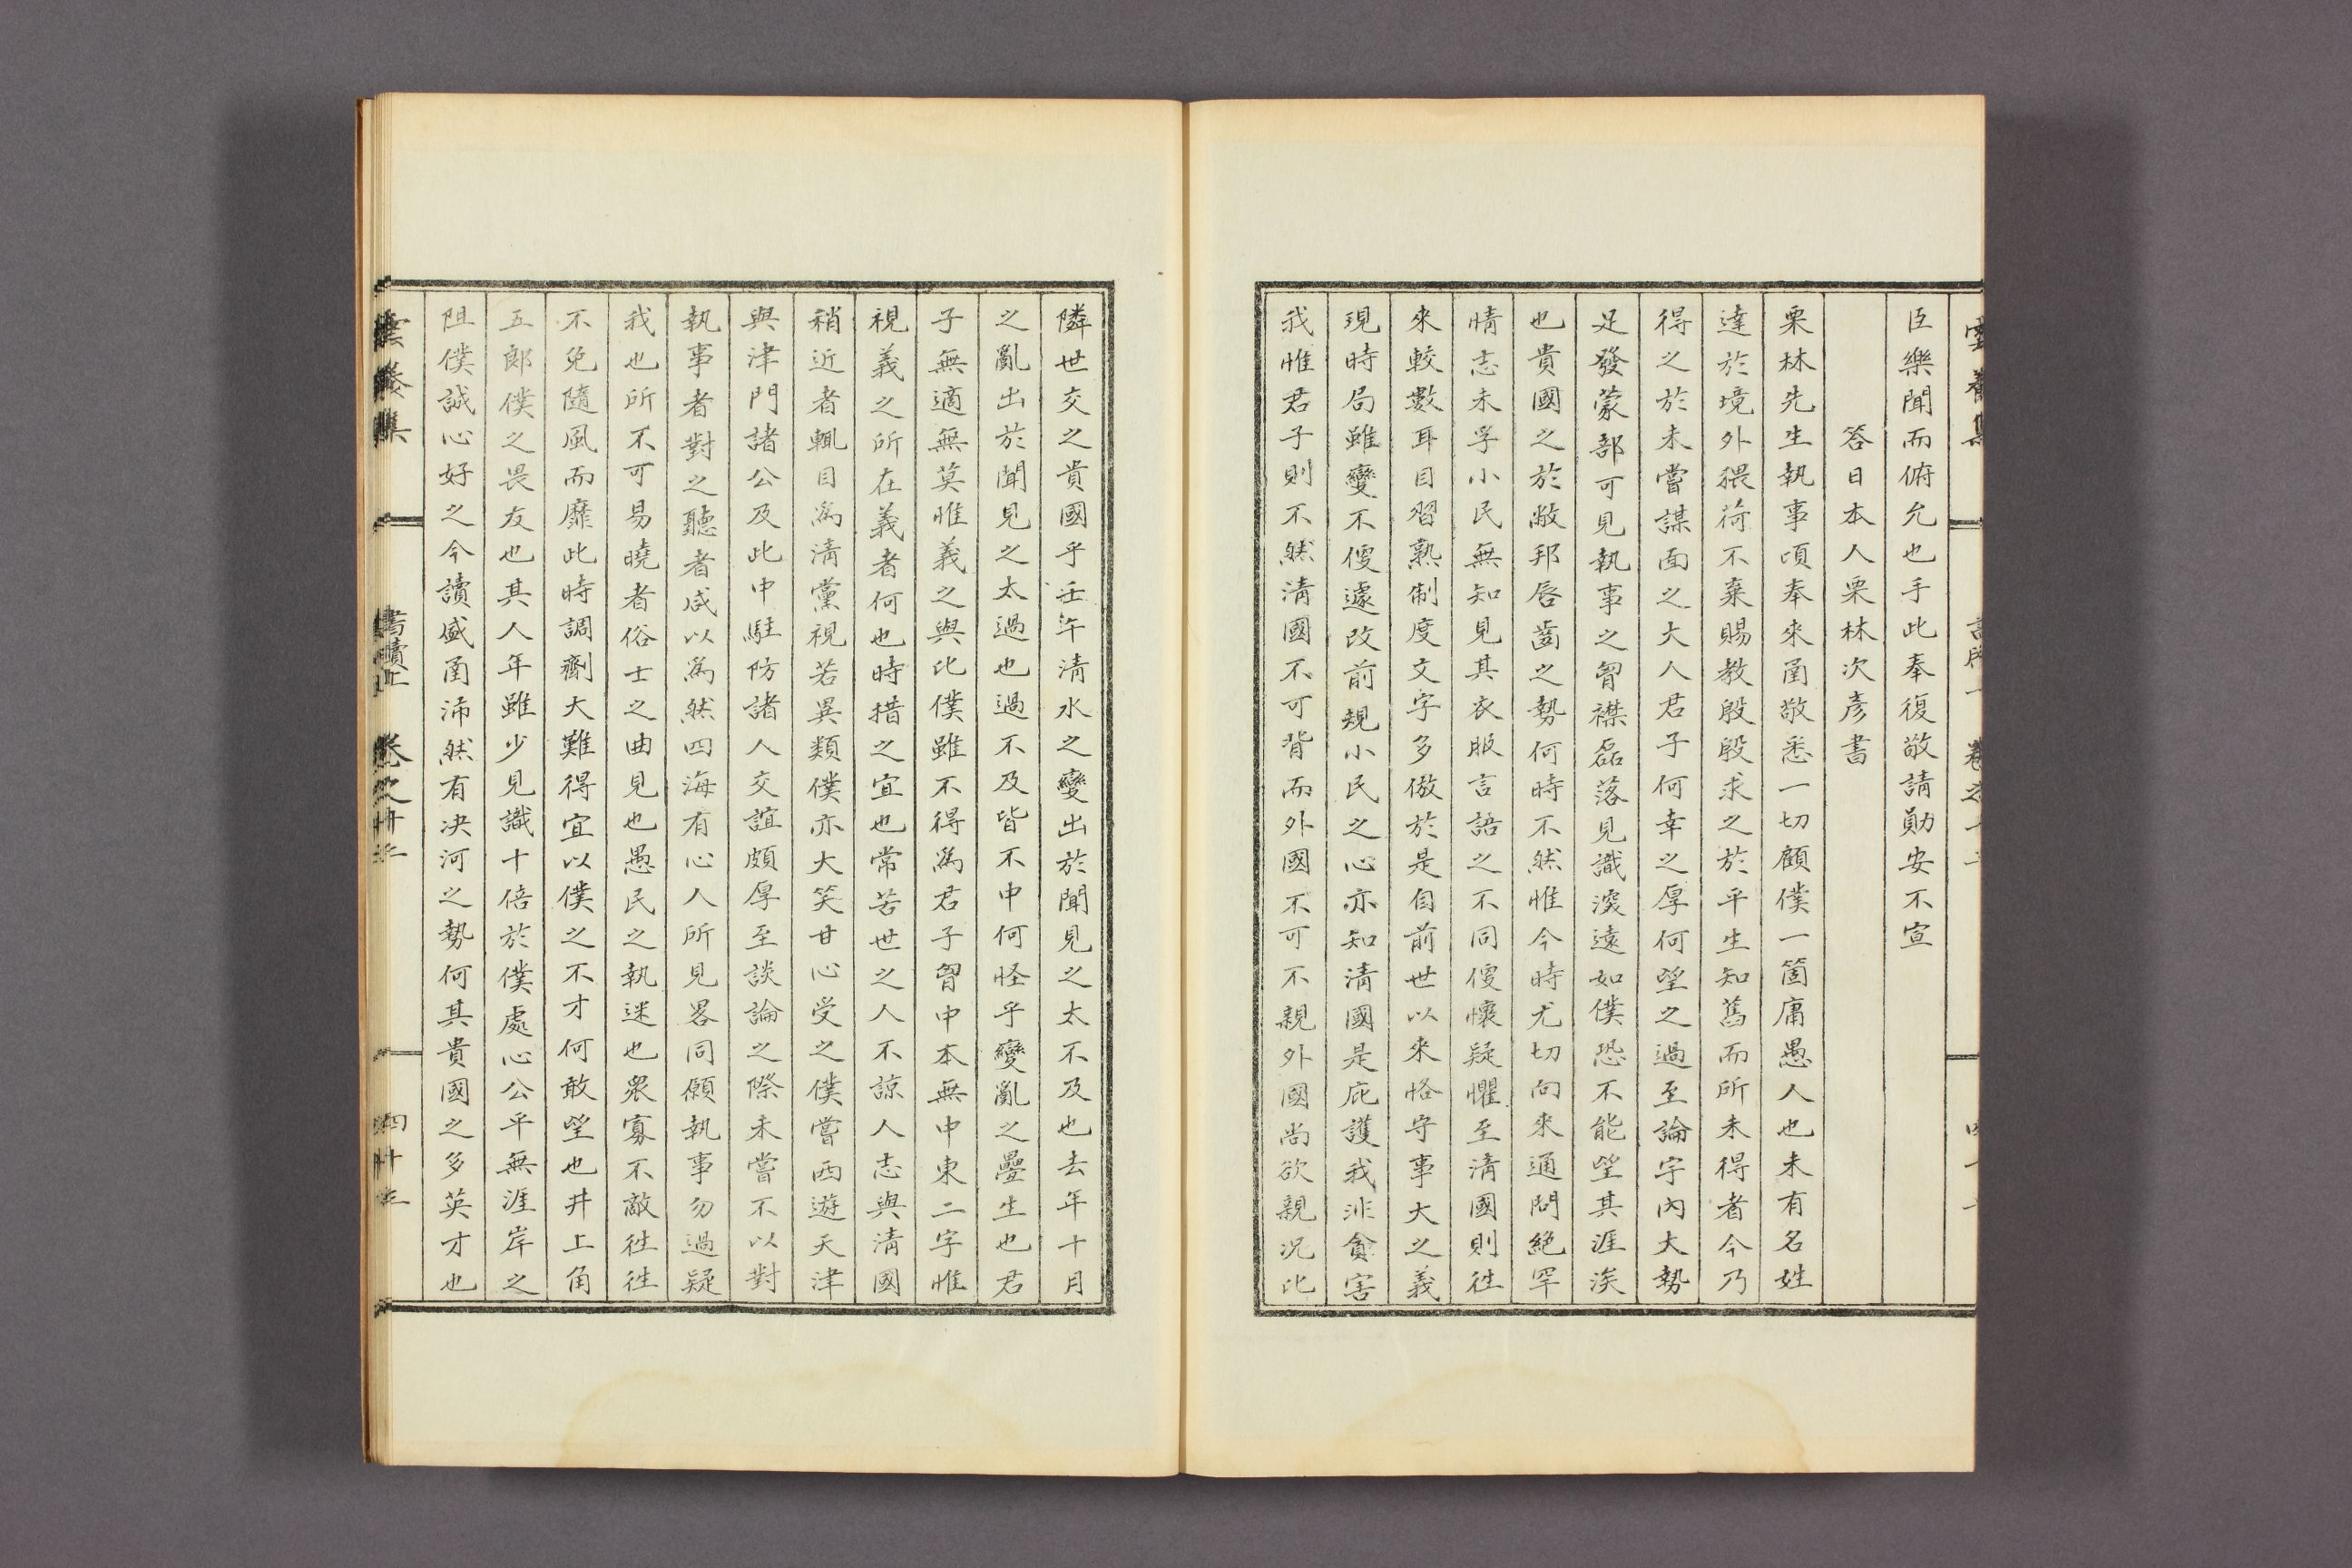 臣樂聞而俯允也手此奉復敬請勛安不宣
答日本人栗林次彥書
栗林先生執事頃奉來圅敬悉一切顧僕一箇庸愚人也未有名姓
達於境外猥荷不棄賜教殷殷求之於平生知舊而所未得者今乃
得之於未嘗謀面之大人君子何幸之厚何望之過至論宇內大勢
足發蒙蔀可見執事之胷襟磊落見識深遠如僕恐不能望其涯涘
也貴國之於敝邦唇齒之勢何時不然惟今時尤切向來通問絕罕
情志未孚小民無知見其衣服言語之不同便懷疑懼至淸國則徃
來較數耳目習熟制度文字多倣於是自前世以來恪守事大之義
現時局雖變不便遽改前規小民之心亦知淸國是庇護我非貪害
我惟君子則不然淸國不可背而外國不可不親外國尚欲親况比
隣世交之貴國乎壬午淸水之變出於聞見之太不及也去年十月
之亂出於聞見之太過也過不及皆不中何怪乎變亂之疊生也君
子無適無莫惟義之與比僕雖不得爲君子胷中本無中東二字惟
視義之所在義者何也時措之宜也常苦世之人不諒人志與淸國
稍近者輒目爲淸黨視若異類僕亦大笑甘心受之僕嘗西遊天津
與津門諸公及此中駐防諸人交誼頗厚至談論之際未嘗不以對
執事者對之聽者咸以爲然四海有心人所見畧同願執事勿過疑
我也所不可易曉者俗士之曲見也愚民之執迷也衆寡不敵徃徃
不免隨風而靡此時調劑大難得宜以僕之不才何敢望也井上角
五郞僕之畏友也其人年雖少見識十倍於僕處心公平無涯岸之
阻僕誠心好之今讀盛圅沛然有决河之勢何其貴國之多英才也
雲養集
書牘上
卷之十二
四十三